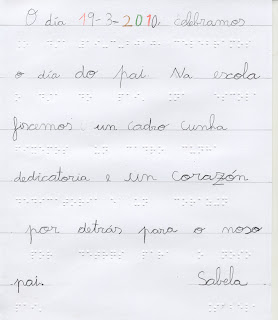 O día 19-3-2010, celebramos
o día do pai. Na escola
fixemos un cadro cunha
dedicatoria e un corazón
por detrás para o noso
pai. Sabela